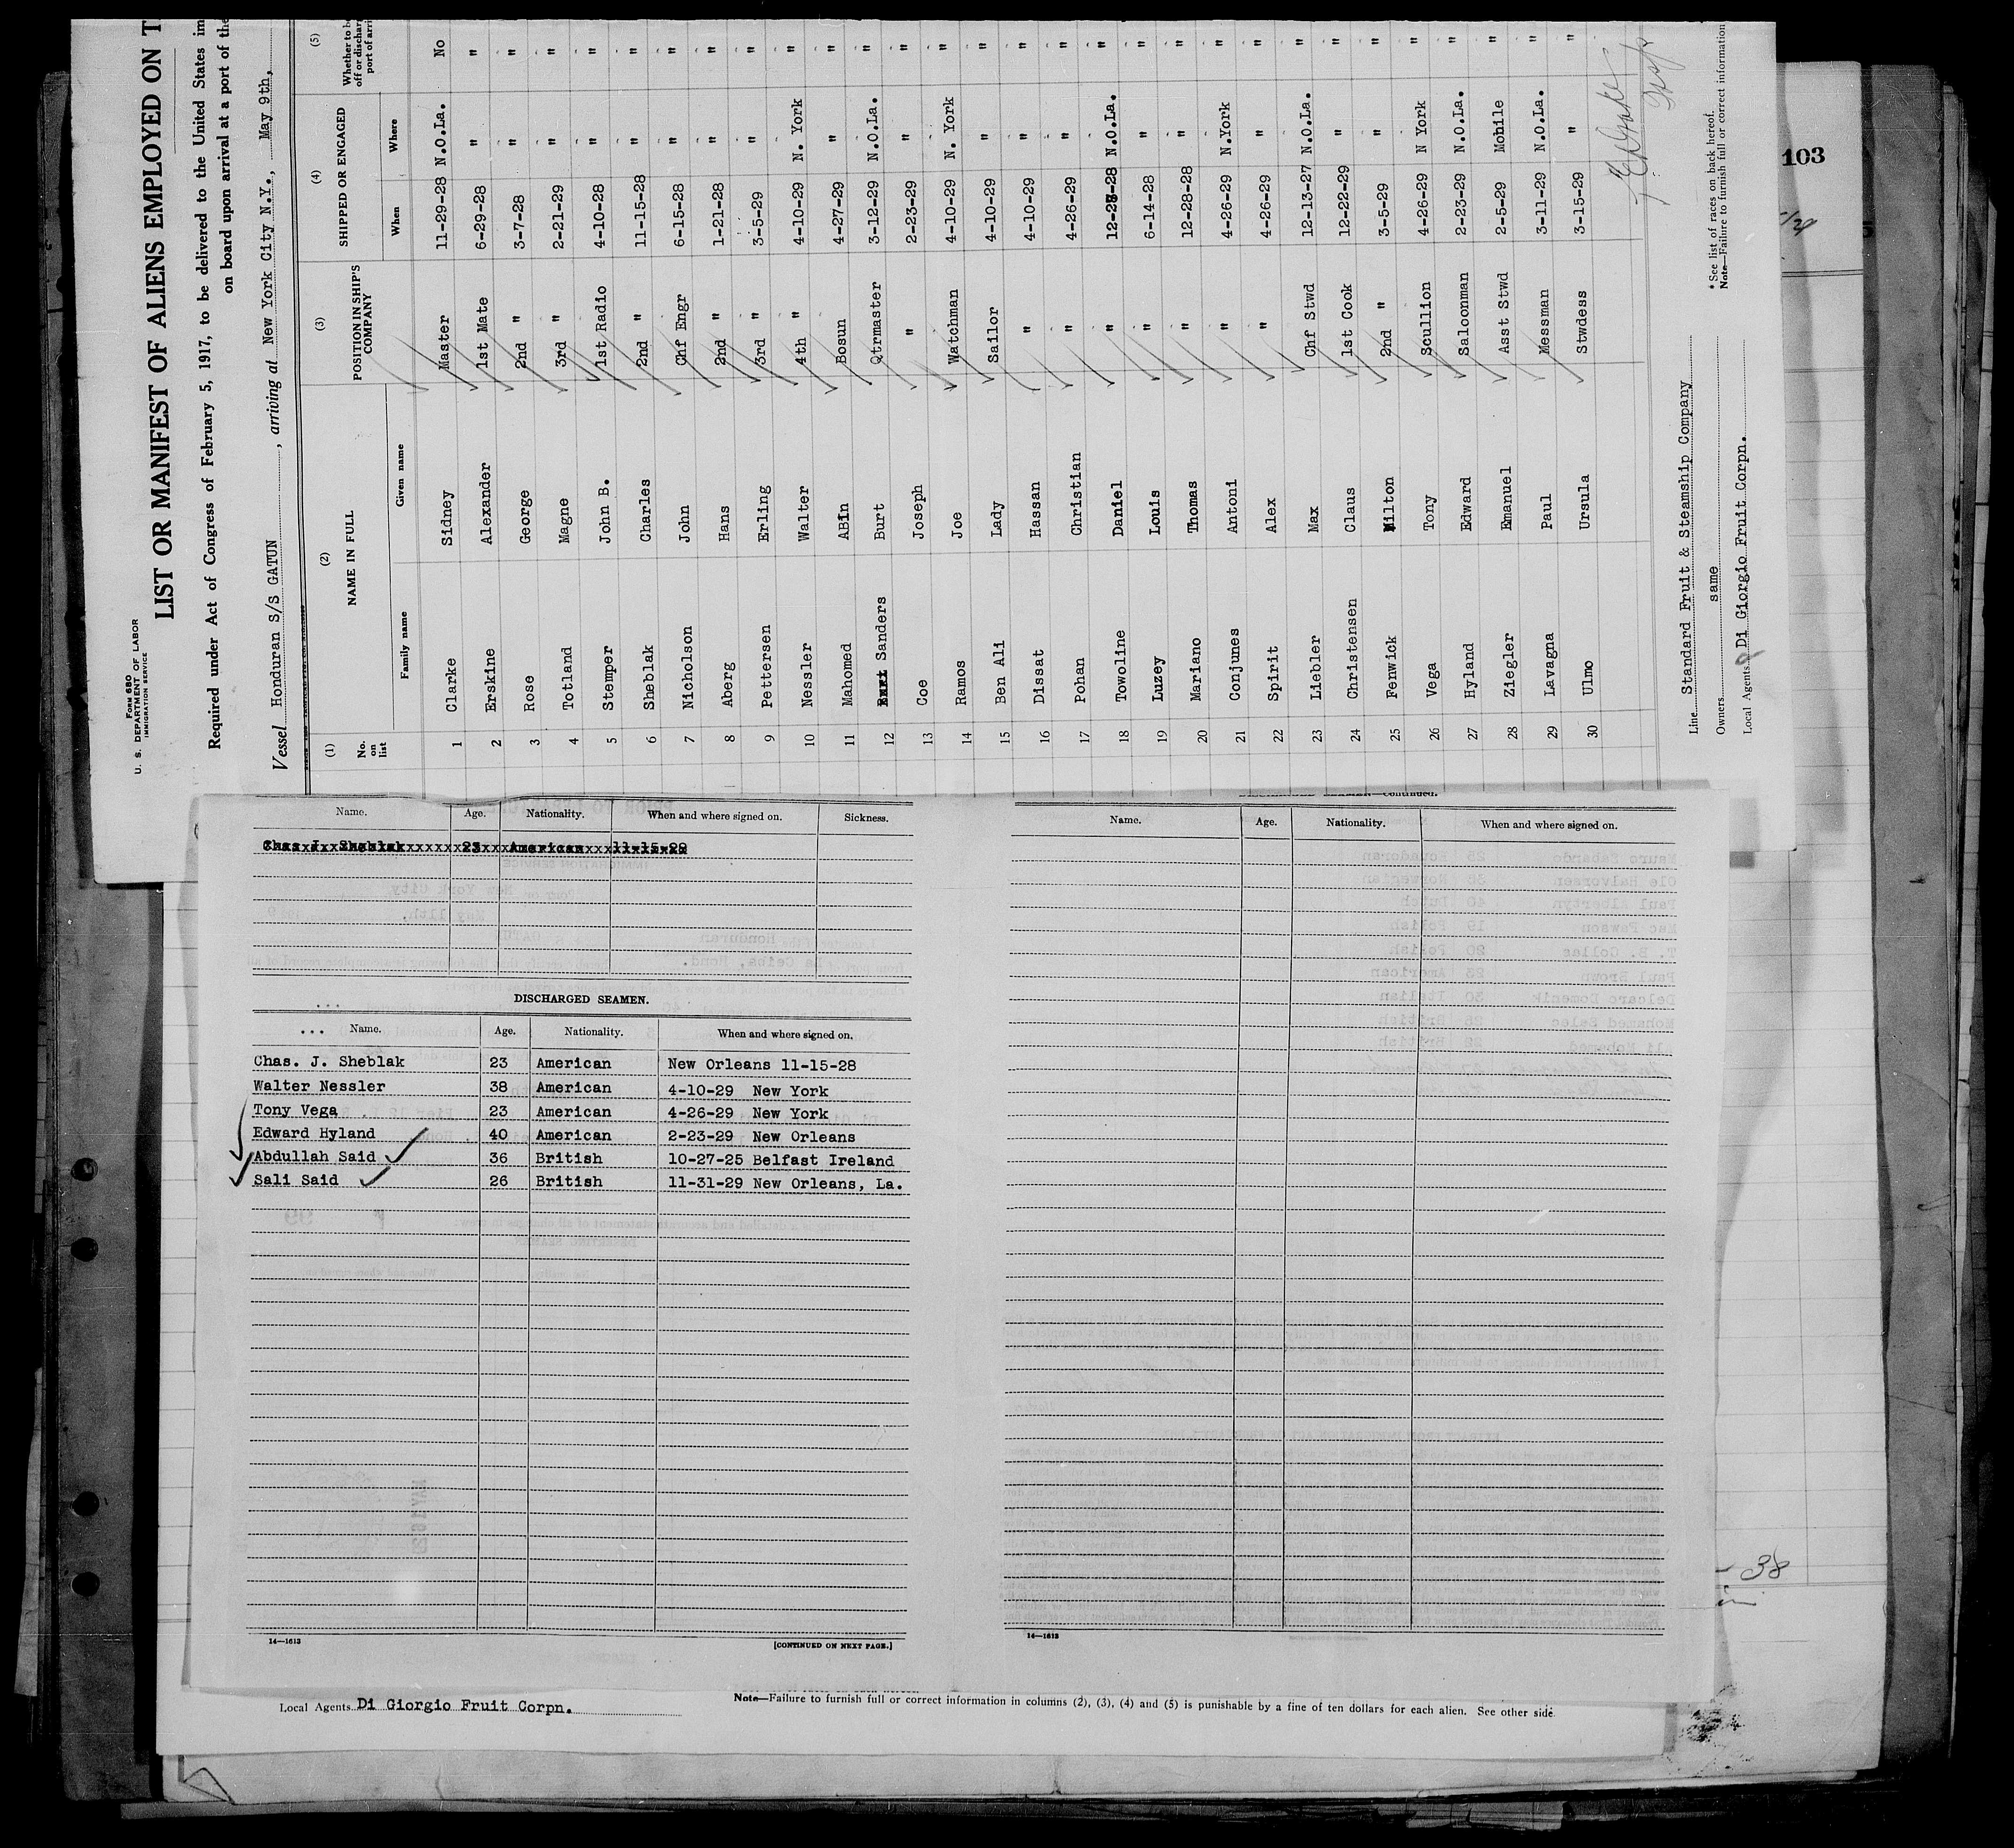 Form 680
U. S. DEPARTMENT OF LABOR
IMMIGRATION SERVICE
LIST OR MANIFEST OF ALIENS EMPLOYED ON T
Required under Act of Congress of February 5, 1917, to be delivered to the United States im
on board upon arrival at a port of the
Vessel Honduran S/S GATUN, arriving at New York City N.Y., May 9th,
(1) (2) (3) (4) (5)
No. on list NAME IN FULL POSITION IN SHIP'S COMPANY SHIPPED OR ENGAGED Whether to be
off or discharg
port of arri
Family name Given name When Where
1 Clarke Sidney Master 11-29-28 N.O.La. No
2 Erskine Alexander 1st Mate 6-29-28 " "
3 Rose George 2nd " 3-7-28 " "
4 Totland Magne 3rd " 2-21-29 " "
5 Stemper John B. 1st Radio 4-10-28 " "
6 Sheblak Charles 2nd " 11-15-28 " "
7 Nicholson John Chf Engr 6-15-28 " "
8 Aberg Hans 2nd " 1-21-28 " "
9 Pettersen Erling 3rd " 3-5-29 " "
10 Nessler Walter 4th " 4-10-29 N. York "
11 Mahomed ABin Bosun 4-27-29 " "
12 Sanders Burt Qtrmaster 3-12-29 N.O.La. "
13 Coe Joseph " 2-23-29 " "
14 Ramos Joe Watchman 4-10-29 N. York "
15 Ben Ali Lady Sailor 4-10-29 " "
16 Dissat Hassan " 4-10-29 " "
17 Pohan Christian " 4-26-29 " "
18 Towoline Daniel " 12-28-28 N.O.La. "
19 Luzey Louis " 6-14-28 " "
20 Mariano Thomas " 12-28-28 " "
21 Conjunes Antoni " 4-26-29 N.York "
22 Spirit Alex " 4-26-29 " "
23 Liebler Max Chf Stwd 12-13-27 N.O.La. "
24 Christensen Claus 1st Cook 12-22-29 " "
25 Fenwick Milton 2nd " 3-5-29 " "
26 Vega Tony Scullion 4-26-29 N York "
27 Hyland Edward Saloonman 2-23-29 N.O.La. "
28 Ziegler Emanuel Asst Stwd 2-5-29 Mobile "
29 Lavagna Paul Messman 3-11-29 N.O.La. "
30 Ulmo Ursula Stwdess 3-15-29 " "
Line Standard Fruit & Steamship Company
Owners same
Local Agents Di Giorgio Fruit Corpn.
* See list of races on back hereof.
Note—Failure to furnish full or correct information
103
Name. Age. Nationality. When and where signed on. Sickness.
Chas. J. Sheblak 23 American 11-15-28
DISCHARGED SEAMEN.
Name. Age. Nationality. When and where signed on.
Chas. J. Sheblak 23 American New Orleans 11-15-28
Walter Nessler 38 American 4-10-29 New York
Tony Vega 23 American 4-26-29 New York
Edward Hyland 40 American 2-23-29 New Orleans
Abdullah Said 36 British 10-27-25 Belfast Ireland
Sali Said 26 British 11-31-29 New Orleans, La.
14—1613 [CONTINUED ON NEXT PAGE.]
Continued.
Name. Age. Nationality. When and where signed on.
14—1613
38
Local Agents Di Giorgio Fruit Corpn.
Note—Failure to furnish full or correct information in columns (2), (3), (4) and (5) is punishable by a fine of ten dollars for each alien. See other side.